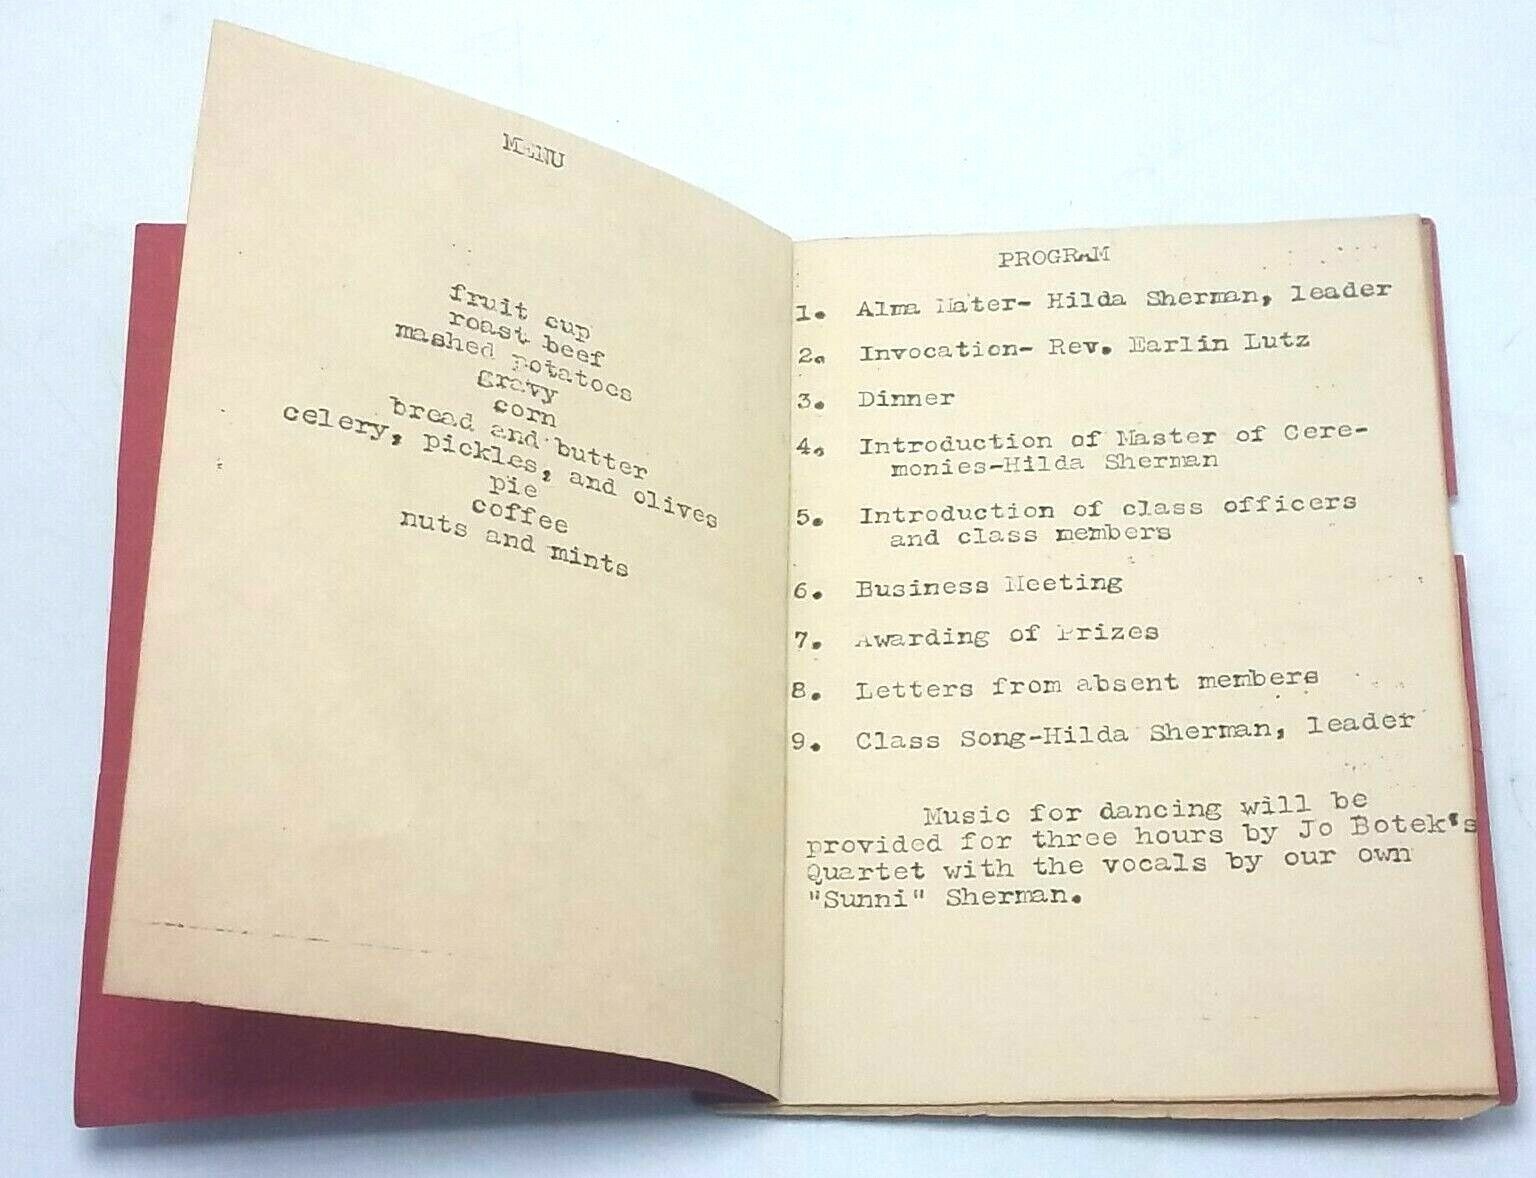 MENU
fruit cup
roast beef
mashed potatoes
gravy
corn
bread and butter
celery, pickles, and olives
pie
coffee
nuts and mints
PROGRAM
1. Alma Mater- Hilda Sherman, leader
2. Invocation- Rev. Earlin Lutz
3. Dinner
4. Introduction of Master of Cere-
monies-Hilda Sherman
5. Introduction of class officers
and class members
6. Business Meeting
7. Awarding of Prizes
8. Letters from absent members
9. Class Song-Hilda Sherman, leader
Music for dancing will be
provided for three hours by Jo Botek's
Quartet with the vocals by our own
"Sunni" Sherman.